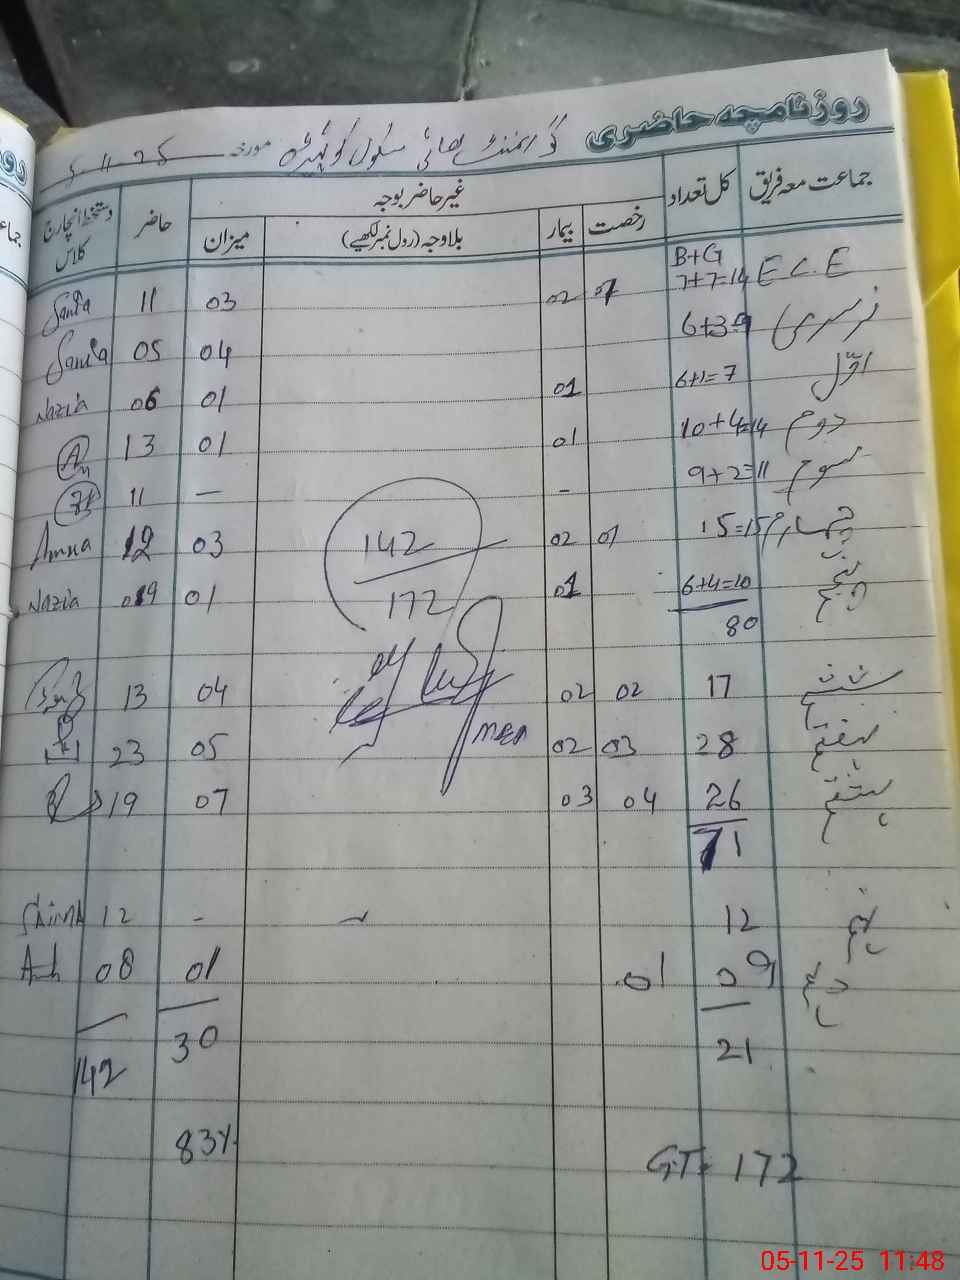 روزنامچہ حاضری گورنمنٹ ہائی سکول مورخہ 5-11-25
جماعت معہ فریق کل تعداد غیر حاضر بوجہ حاضر دستخط انچارج کلاس
رخصت بیمار بلاوجہ (رول نمبر لکھیے) میزان
E C.E B+G 7+7=14 01 02 03 11 Sadia
نرسری 6+3=9 04 05
اوّل 6+1=7 01 01 06 Nazia
دوم 10+4=14 01 01 13
سوم 9+2=11 - — 11
چہارم 15=15 01 02 03 12 Amna
پنجم 6+4=10 01 01 09 Nazia
142
172
80
ششم 17 02 02 04 13
ہفتم 28 03 02 05 23
ہشتم 26 04 03 07 19
71
نہم 12 - 12
دہم 09 01 01 08
21 30 142
83%
G.T= 172
05-11-25 11:48